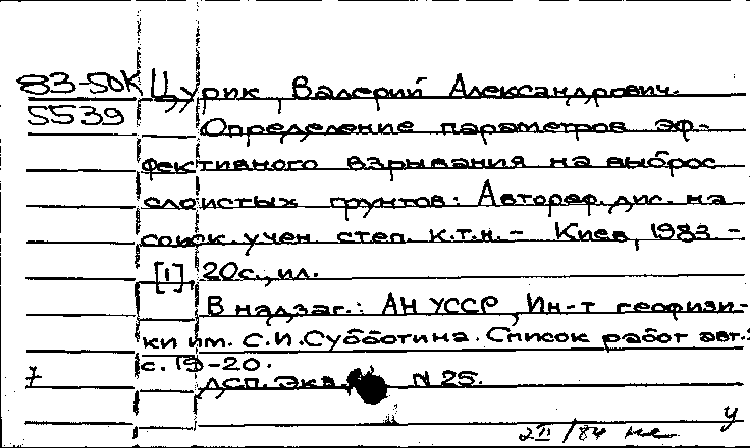 83-50К Цурик, Валерий Александрович.
5539
Определение параметров эф-
фективного взрывания на выброс
слоистых грунтов: Автореф. дис. на
соиск. учен. степ. к.т.н. - Киев, 1983 -
[1], 20с., ил.
В надзаг.: АН УССР, Ин-т геофизи-
ки им. С.И.Субботина. Список работ авт.:
с. 19-20.
7 ДСП. Экз. N 25.
у
2 II /84